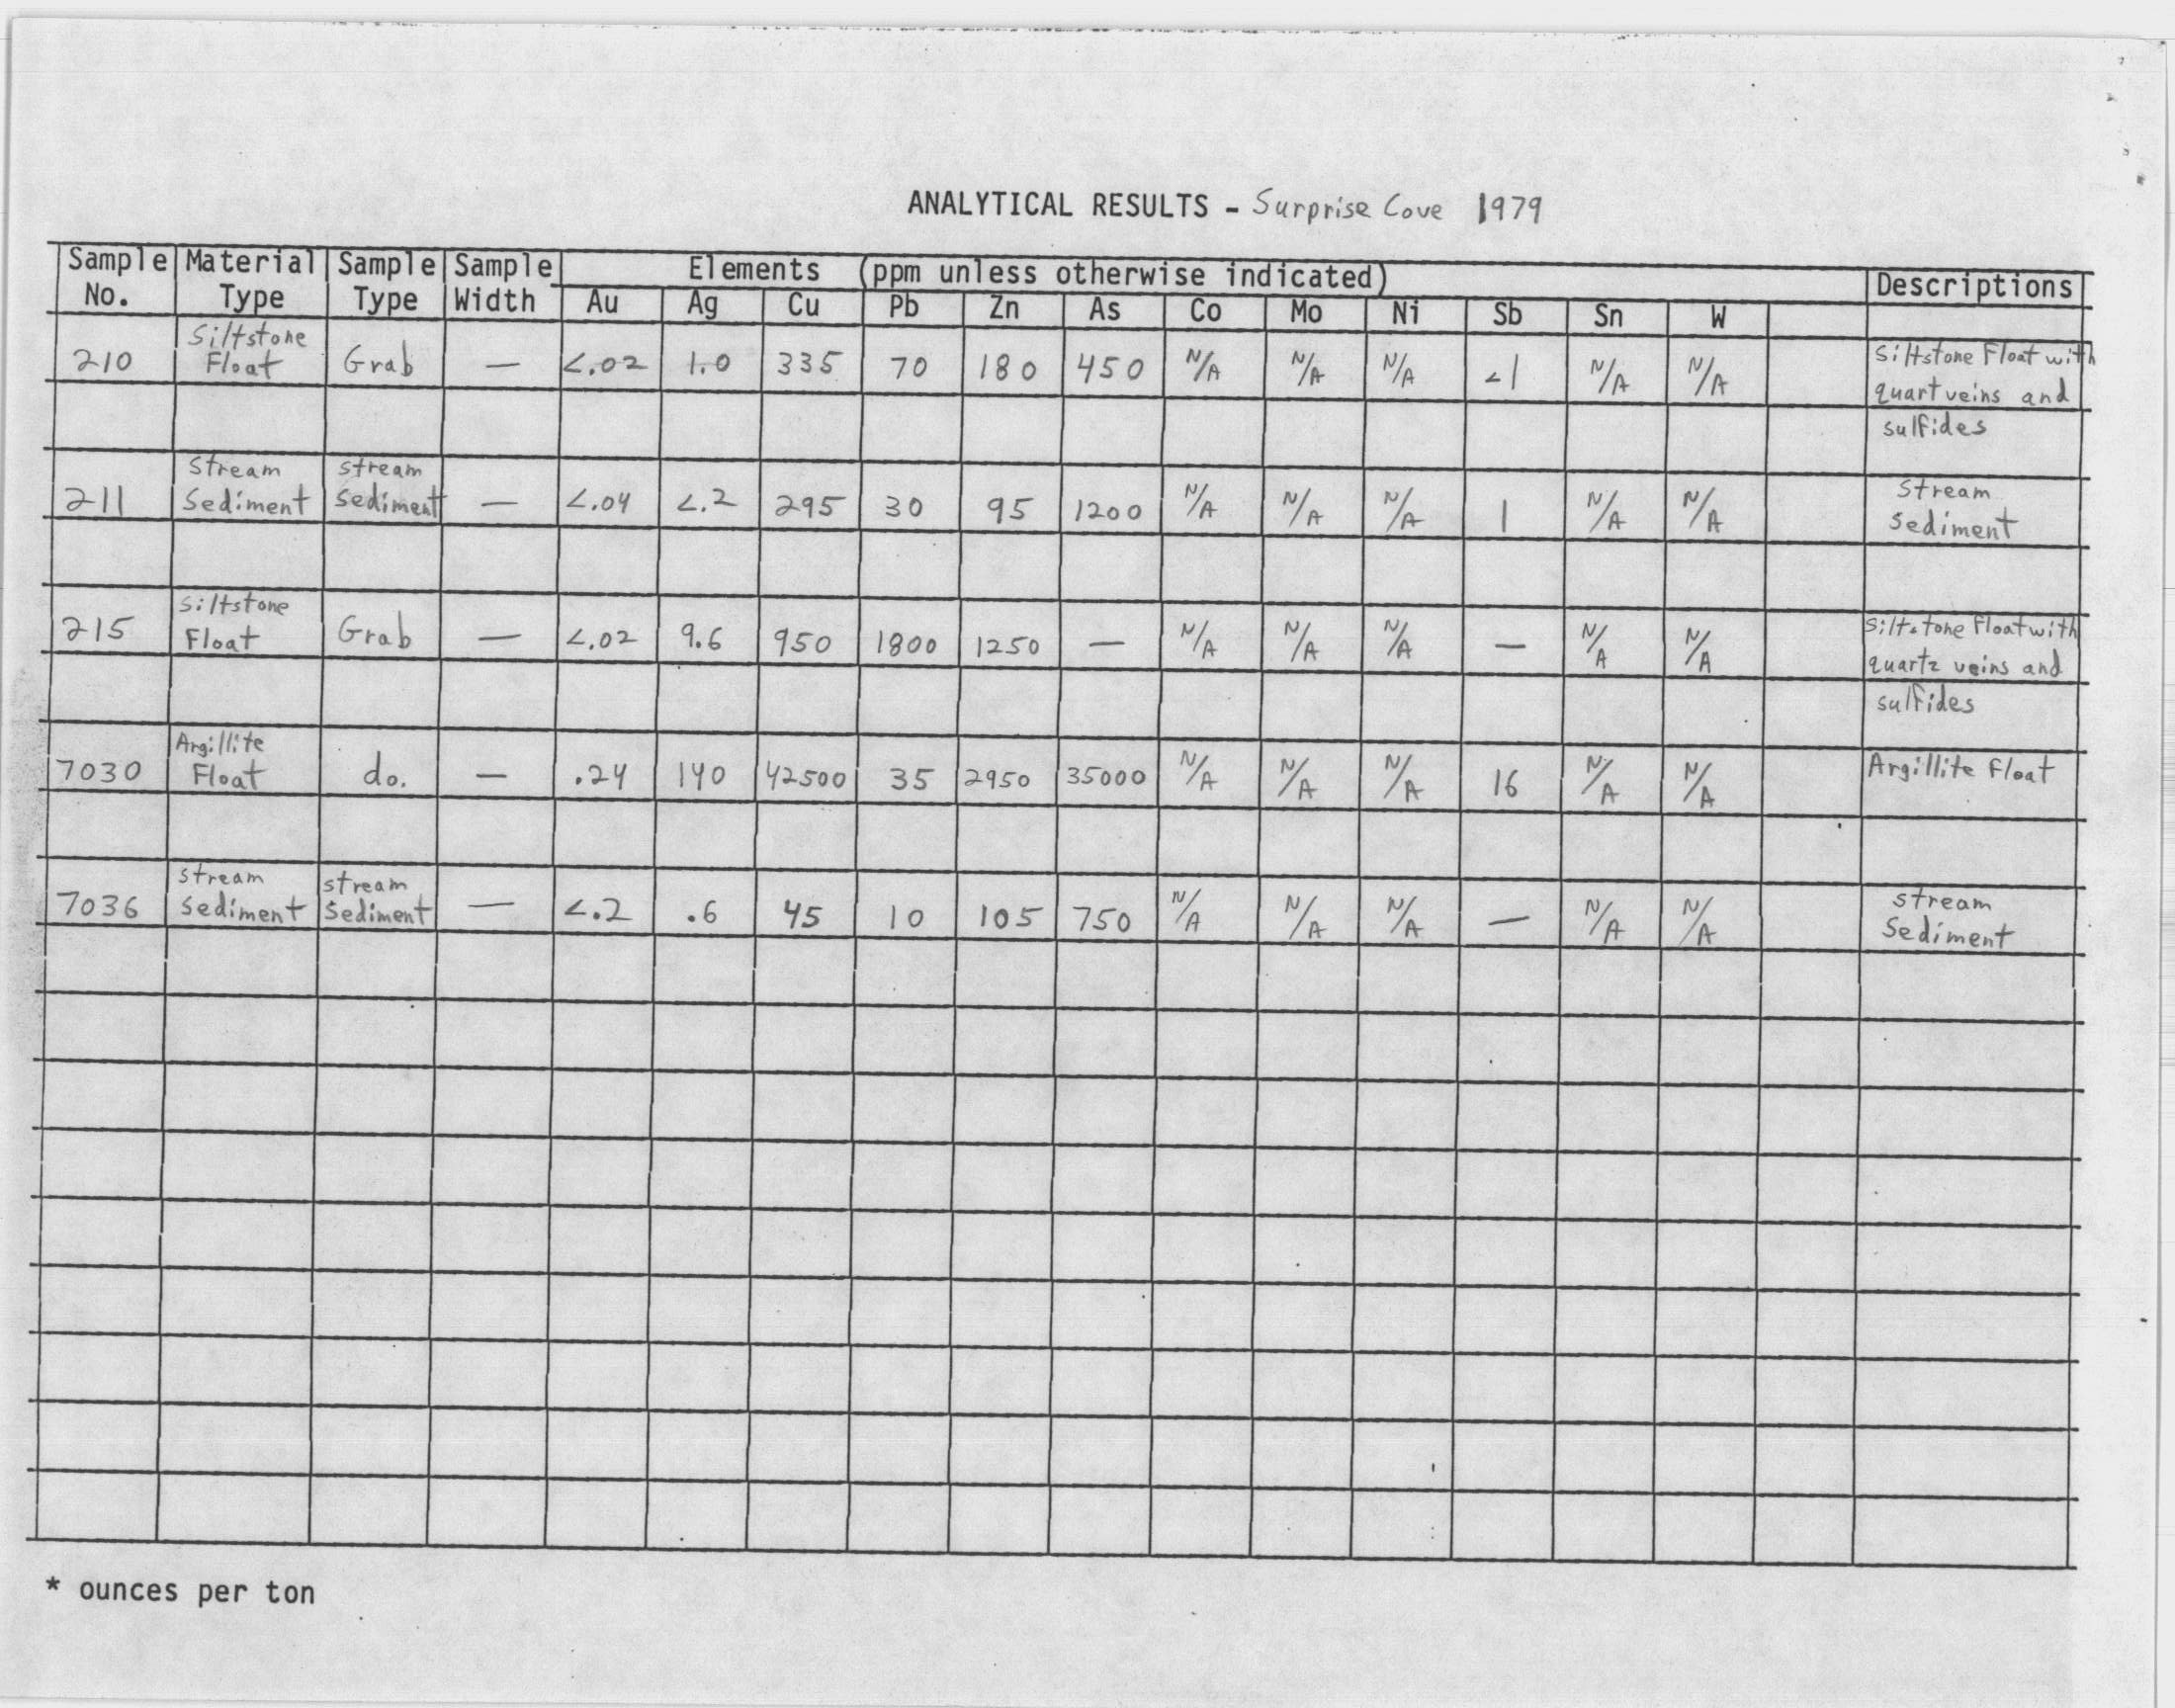 ANALYTICAL RESULTS - Surprise Cove 1979
Sample Material Sample Sample Elements (ppm unless otherwise indicated) Descriptions
No. Type Type Width Au Ag Cu Pb Zn As Co Mo Ni Sb Sn W
Siltstone Siltstone Float with
210 Float Grab — <.02 1.0 335 70 180 450 N/A N/A N/A <1 N/A N/A quart veins and
sulfides
Stream stream Stream
211 Sediment Sediment — <.04 <.2 295 30 95 1200 N/A N/A N/A 1 N/A N/A Sediment
Siltstone Siltstone Float with
215 Float Grab — <.02 9.6 950 1800 1250 — N/A N/A N/A — N/A N/A quartz veins and
sulfides
Argillite
7030 Float do. — .24 140 42500 35 2950 35000 N/A N/A N/A 16 N/A N/A Argillite Float
Stream stream Stream
7036 Sediment Sediment — <.2 .6 45 10 105 750 N/A N/A N/A — N/A N/A Sediment
* ounces per ton